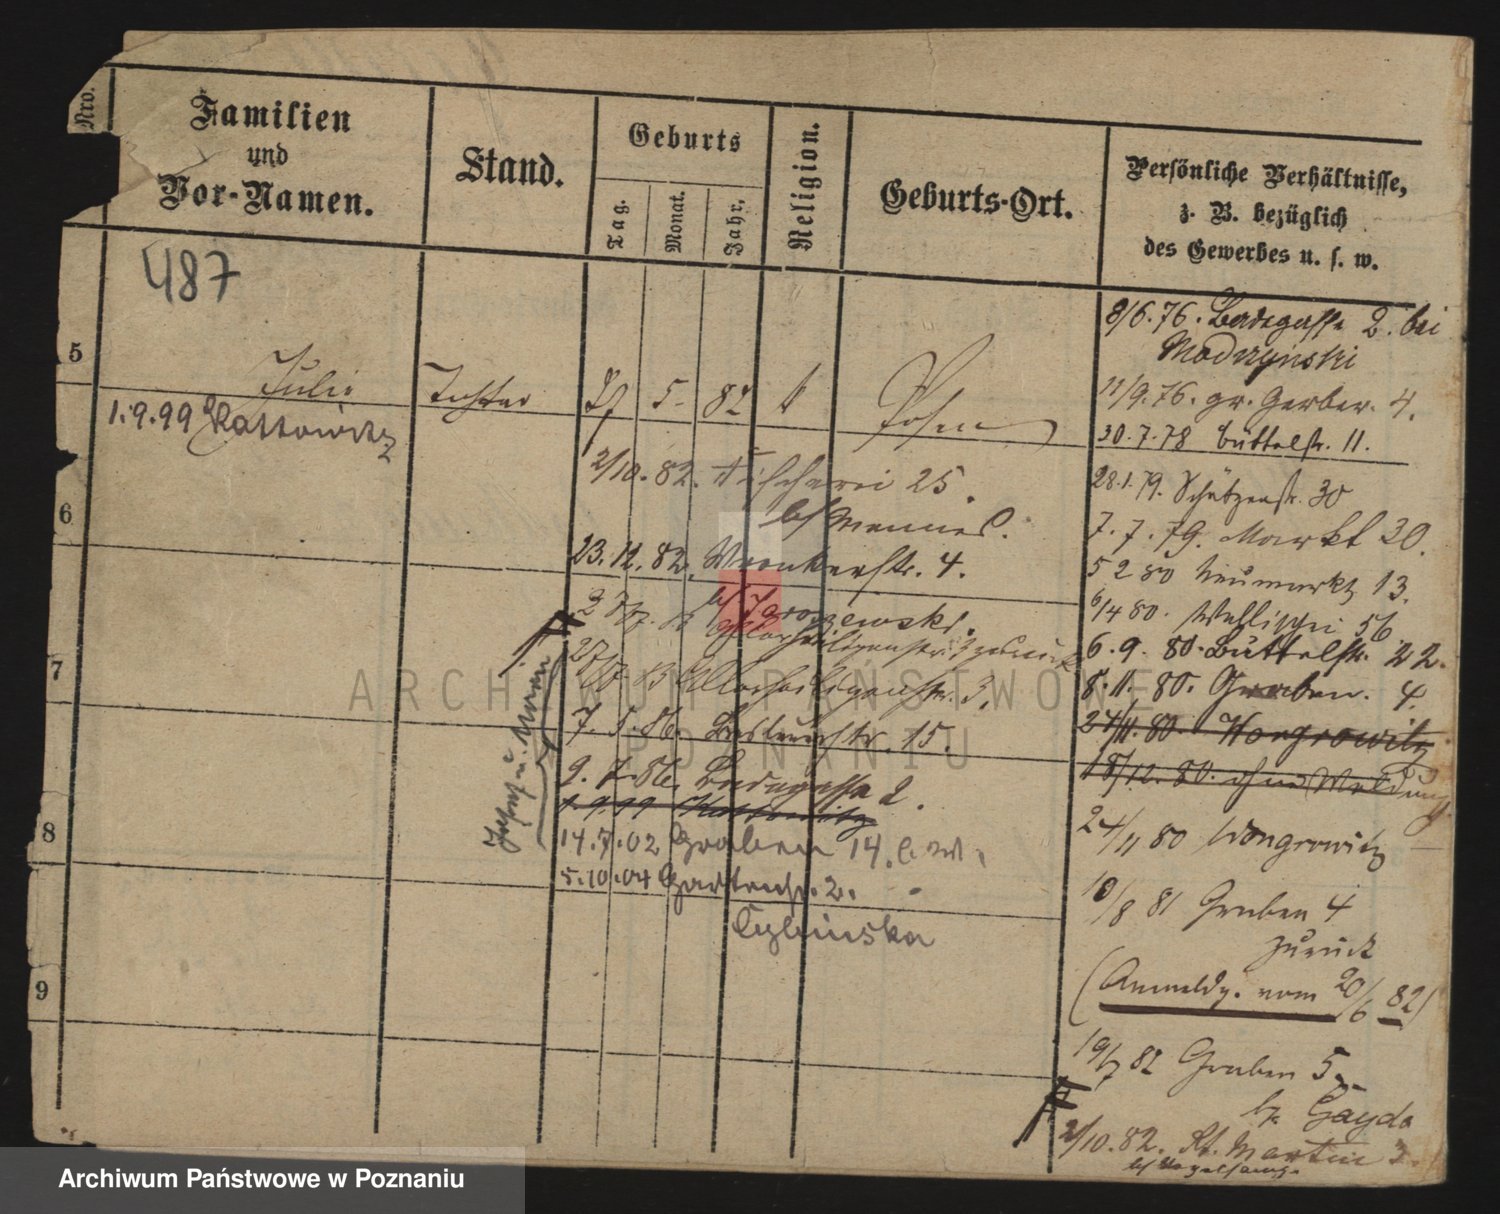 Nro.
Familien
und
Vor-Namen.
Stand.
Geburts
Tag.
Monat.
Jahr.
Religion.
Geburts-Ort.
Persönliche Verhältnisse,
z. B. bezüglich
des Gewerbes u. s. w.
487
5
Julie
Tochter
5.
82
Posen
1.9.99 Kattowitz
6
2/10.82. Fischerei 25.
23.11.82. Wronkerstr. 4.
7
Allerheiligenstr. 3.
7.5.86. 15.
9.7.86. Badegasse 2.
1.9.99 Kattowitz
8
14.7.02 Graben 14.
5.10.04 Gartenstr. 2.
Cybinska
9
8/6.76. Badegasse 2. bei
Modrzynski
11/9.76. gr. Gerber. 4.
30.7.78 Büttelstr. 11.
28.1.79. Schützenstr. 30
7.7.79. Markt 30.
5 2 80 Neumarkt 13.
6/4 80. Wallischei 56
6.9.80. Büttelstr. 22.
8.11.80. Graben. 4.
24/11.80. Wongrowitz
18/12.80. ohne Meldung
24/11 80 Wongrowitz
10/8 81 Graben 4
zurück
(Anmeldg. vom 20/6 82)
19/7 82 Graben 5
b. Gayda
2/10.82. St. Martin
ARCHIWUM PAŃSTWOWE
W POZNANIU
Archiwum Państwowe w Poznaniu